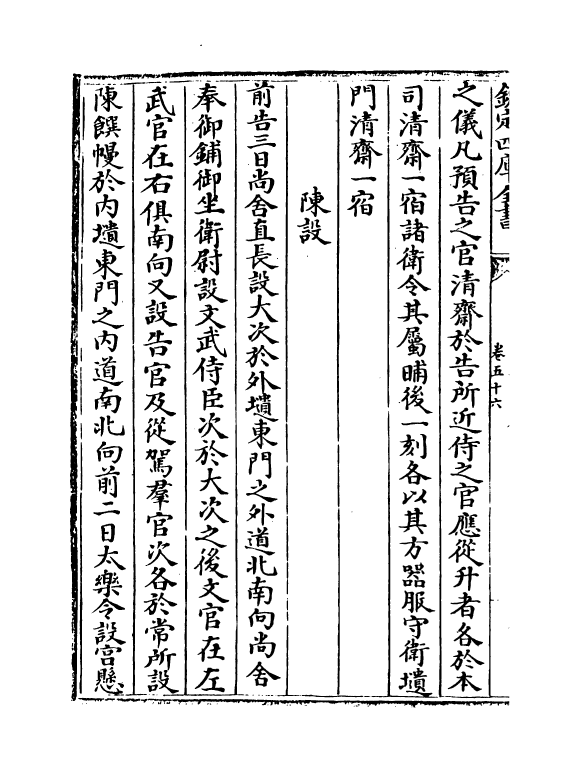 欽定四庫全書
卷五十六
之儀凡預告之官清齋於告所近侍之官應從升者各於本
司清齋一宿諸衛令其屬晡後一刻各以其方器服守衛壝
門清齋一宿
陳設
前告三日尚舍直長設大次於外壝東門之外道北南向尚舍
奉御鋪御坐衛尉設文武侍臣次於大次之後文官在左
武官在右俱南向又設告官及從駕羣官次各於常所設
陳饌幔於内壝東門之内道南北向前二日太樂令設宫懸